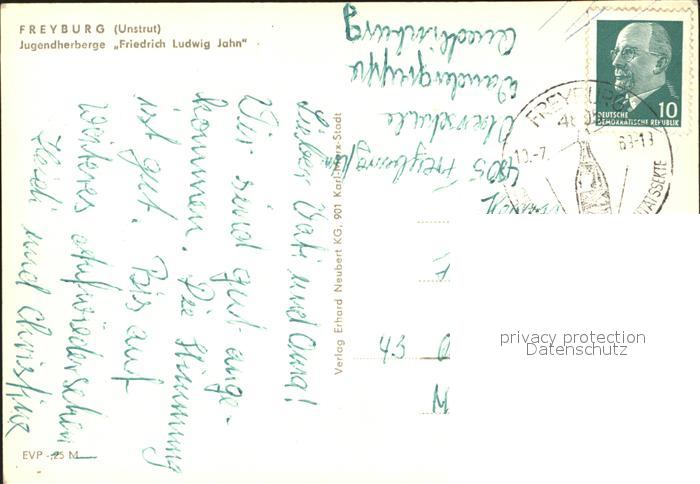 FREYBURG (Unstrut)
Jugendherberge „Friedrich Ludwig Jahn"
Lieber Vati und Oma!
Wir sind gut ange-
kommen. Die Stimmung
ist gut. Bis auf
weiteres aufwiedersehen
Heidi und Christine
EVP -,25 M
Verlag Erhard Neubert KG, 901 Karl-Marx-Stadt
Wandergruppe
Oberschule
4805 Freyburg
43
10
DEUTSCHE
DEMOKRATISCHE REPUBLIK
FREYBURG
privacy protection
Datenschutz